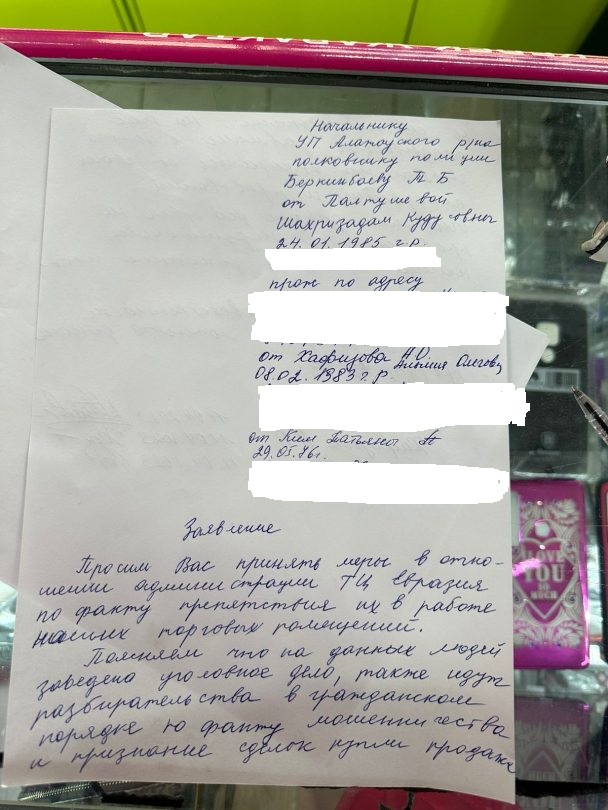 Начальнику
УП Алатауского р/на
полковнику полиции
Беркинбаеву Т Б
от Палтушевой
Шахризадам Кудусовны
24.01.1985 г.р.
прож по адресу
от Хафизова АО Альмия Олегов
08.02.1983 г.р
от Ким Татьяны А
29.05.76г.
Заявление
Просим Вас принять меры в отно-
шении администрации ТЦ Евразия
по факту препятствия их в работе
наших торговых помещений.
Поясняем что на данных людей
заведено уголовное дело, также идут
разбирательства в гражданском
порядке по факту мошенничества
и признание сделок купли продажи
LOVE
YOU
SO
MUCH